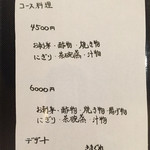 コース料理
4500円
お刺身・酢物・焼き物
にぎり・茶碗蒸・汁物
6000円
お刺身・酢物・焼き物・揚げ物
にぎり・茶碗蒸・汁物
デザート